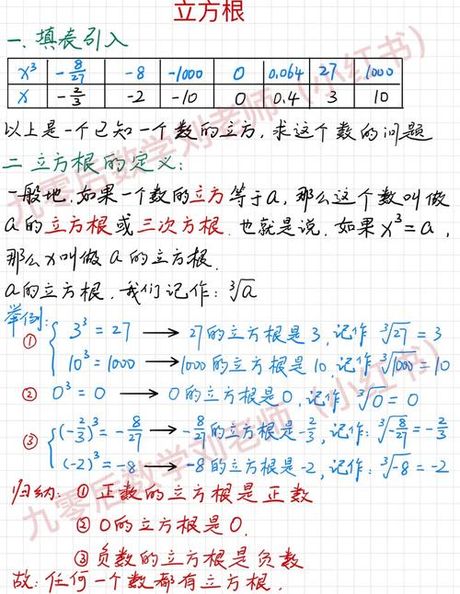 立方根
一、填表引入
x³ -8/27 -8 -1000 0 0.064 27 1000
x -2/3 -2 -10 0 0.4 3 10
以上是一个已知一个数的立方，求这个数的问题
二 立方根的定义：
一般地，如果一个数的立方等于a，那么这个数叫做
a的立方根或三次方根．也就是说，如果x³=a，
那么x叫做a的立方根．
a的立方根，我们记作：∛a
举例：
① 3³=27 → 27的立方根是3，记作 ∛27=3
10³=1000 → 1000的立方根是10，记作∛1000=10
② 0³=0 → 0的立方根是0，记作 ∛0=0
③ (-2/3)³=-8/27 → -8/27的立方根是-2/3，记作：∛(-8/27)=-2/3
(-2)³=-8 → -8的立方根是-2，记作：∛-8=-2
归纳：① 正数的立方根是正数
② 0的立方根是0．
③ 负数的立方根是负数
故：任何一个数都有立方根．
九零后数学刘老师（小红书）
九零后数学刘老师（小红书）